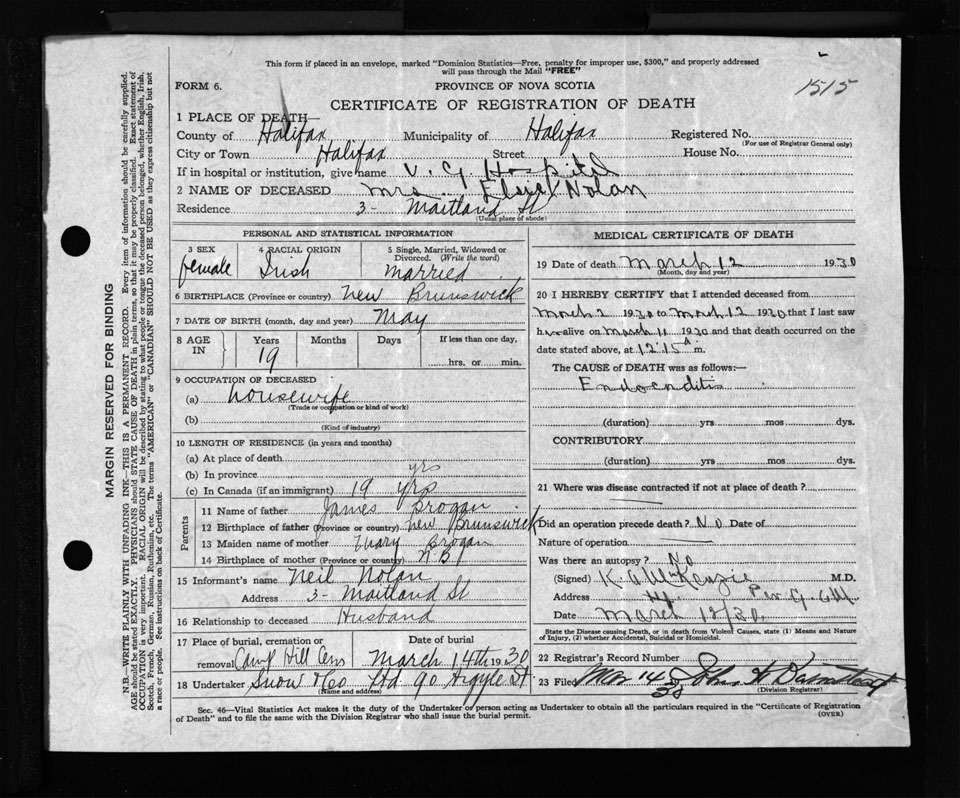 This form if placed in an envelope, marked "Dominion Statistics—Free, penalty for improper use, $300," and properly addressed
will pass through the Mail "FREE"
1515
FORM 6.
PROVINCE OF NOVA SCOTIA
CERTIFICATE OF REGISTRATION OF DEATH
1 PLACE OF DEATH—
County of Halifax Municipality of Halifax Registered No.
(For use of Registrar General only)
City or Town Halifax Street House No.
If in hospital or institution, give name V. G. Hospital
2 NAME OF DECEASED Mrs. Nolan
Residence 3- Maitland St
(Usual place of abode)
PERSONAL AND STATISTICAL INFORMATION
3 SEX 4 RACIAL ORIGIN 5 Single, Married, Widowed or
Divorced. (Write the word)
female Irish married
6 BIRTHPLACE (Province or country) New Brunswick
7 DATE OF BIRTH (month, day and year) May
8 AGE IN Years Months Days If less than one day,
19 hrs. or min.
9 OCCUPATION OF DECEASED
(a) housewife
(Trade or occupation or kind of work)
(b)
(Kind of industry)
10 LENGTH OF RESIDENCE (in years and months)
(a) At place of death
(b) In province yrs
(c) In Canada (if an immigrant) 19 yrs
Parents
11 Name of father James Brogan
12 Birthplace of father (Province or country) New Brunswick
13 Maiden name of mother Mary Brogan
14 Birthplace of mother (Province or country) N.B.
15 Informant's name Neil Nolan
Address 3- Maitland St
16 Relationship to deceased Husband
17 Place of burial, cremation or Date of burial
removal Camp Hill Cem March 14th 1930
18 Undertaker Snow & Co Ltd 90 Argyle St.
(Name and address)
MEDICAL CERTIFICATE OF DEATH
19 Date of death March 12 1930
(Month, day and year)
20 I HEREBY CERTIFY that I attended deceased from
March 2 1930 to March 12 1930 that I last saw
her alive on March 11 1930 and that death occurred on
date stated above, at 12'15 a m.
The CAUSE of DEATH was as follows:—
Endocarditis
(duration) yrs mos dys.
CONTRIBUTORY
(duration) yrs mos dys.
21 Where was disease contracted if not at place of death?
Did an operation precede death? No Date of
Nature of operation
Was there an autopsy? No
(Signed) K. A. McKenzie M.D.
Address Per G.
Date March 12/30.
State the Disease causing Death, or in death from Violent Causes, state (1) Means and Nature
of Injury, (2) whether Accidental, Suicidal or Homicidal.
22 Registrar's Record Number
23 Filed Mar 14 John
(Division Registrar)
Sec. 46—Vital Statistics Act makes it the duty of the Undertaker or person acting as Undertaker to obtain all the particulars required in the "Certificate of Registration
of Death" and to file the same with the Division Registrar who shall issue the burial permit.
(OVER)
MARGIN RESERVED FOR BINDING
N.B.—WRITE PLAINLY WITH UNFADING INK—THIS IS A PERMANENT RECORD. Every item of information should be carefully supplied.
AGE should be stated EXACTLY. PHYSICIANS should STATE CAUSE OF DEATH in plain terms, so that it may be properly classified. Exact statement of
OCCUPATION is very important. RACIAL ORIGIN will be described by stating to what people or tongue the deceased person belonged, whether English, Irish,
Scotch, French, German, Russian, Ruthenian, etc. The terms "AMERICAN" or "CANADIAN" SHOULD NOT BE USED as they express citizenship but not
a race or people. See instructions on back of Certificate.